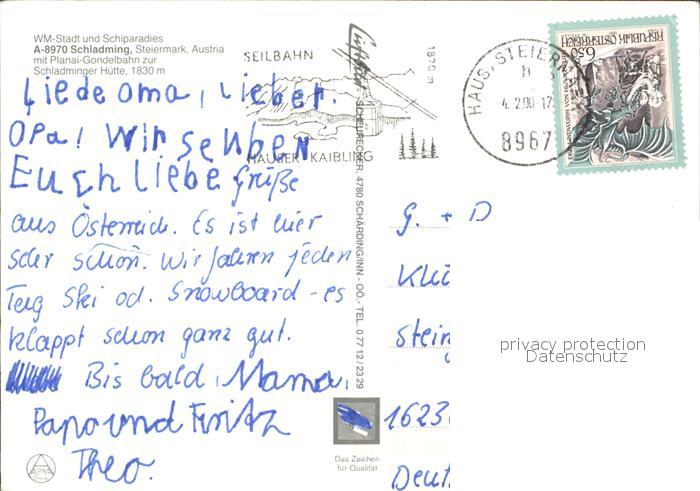 WM-Stadt und Schiparadies
A-8970 Schladming, Steiermark, Austria
mit Planai-Gondelbahn zur
Schladminger Hütte, 1830 m
SEILBAHN
1870 m
HAUSER KAIBLING
HAUS, STEIERM
4.2.00-17
8967
REPUBLIK ÖSTERREICH
6,50
Liede Oma, Lieber.
Opa! Wir senben
Euch Liebe Grüße
aus Österreich. Es ist hier
sehr schön. Wir fahren jeden
Tag Ski od. Snowboard - es
klappt schon ganz gut.
Bis bald, Mama,
Papa und Fritz
Theo.
SCHEURECKER, 4780 SCHÄRDING/INN - OÖ.- TEL. 0 77 12 / 23 29
G. + D
Klü
Stein
1623
Deut
privacy protection
Datenschutz
Das Zeichen
für Qualität